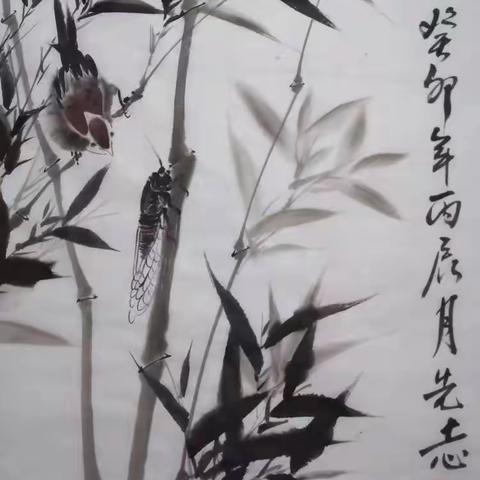 癸卯年丙辰月先志